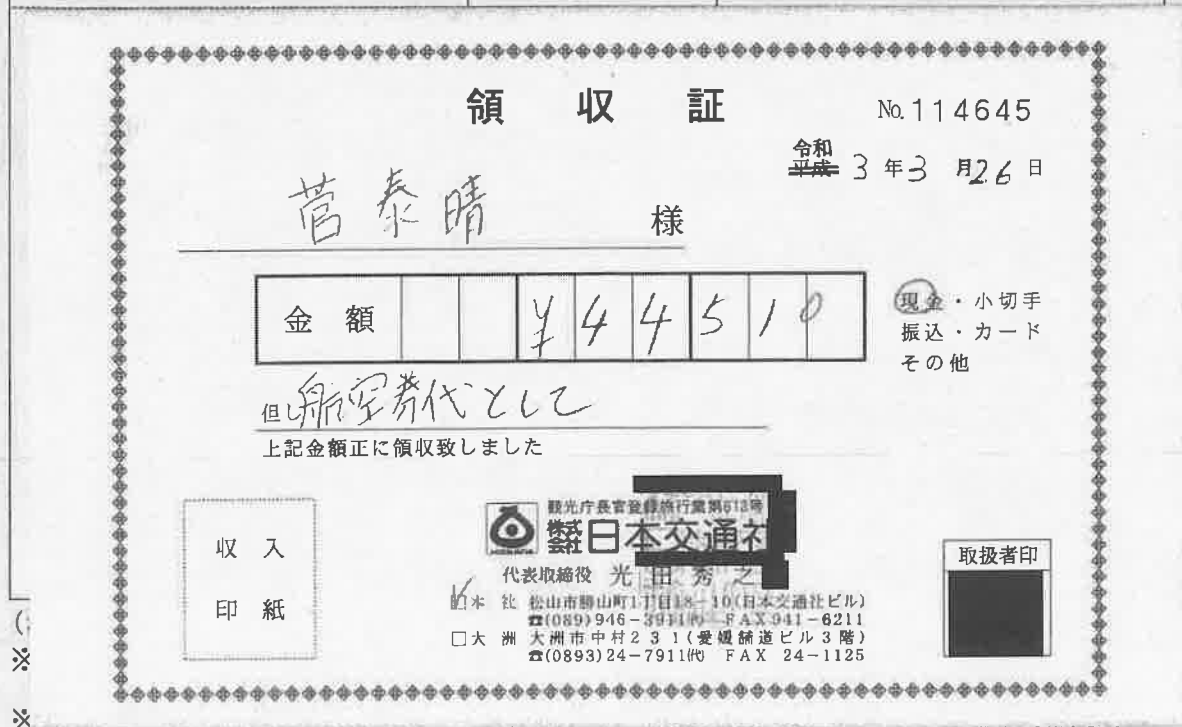 領収証
No.114645
令和
平成 3年3月26日
菅泰晴 様
金額 ¥44510
現金・小切手
振込・カード
その他
但し航空券代として
上記金額正に領収致しました
収入
印紙
観光庁長官登録旅行業第613号
株式会社日本交通社
代表取締役 光田秀之
本社 松山市勝山町1丁目18-10(日本交通社ビル)
☎(089)946-3911㈹ FAX941-6211
□大洲 大洲市中村231(愛媛舗道ビル3階)
☎(0893)24-7911㈹ FAX 24-1125
取扱者印
(
※
※